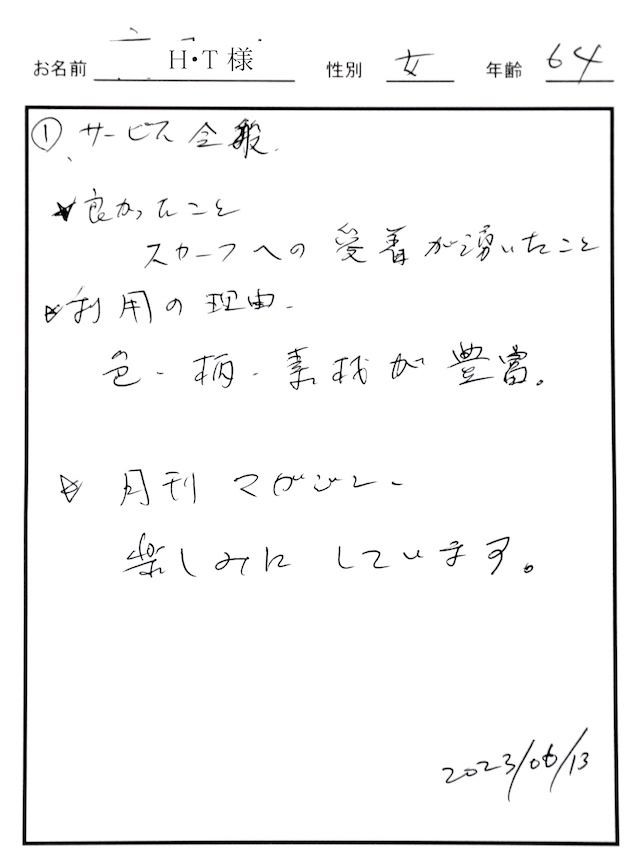 お名前 H・T 様 性別 女 年齢 64
① サービス全般
☆良かったこと
スカーフへの愛着が湧いたこと
☆利用の理由
色・柄・素材が豊富。
☆ 月刊マガジン
楽しみにしています。
2023/06/13